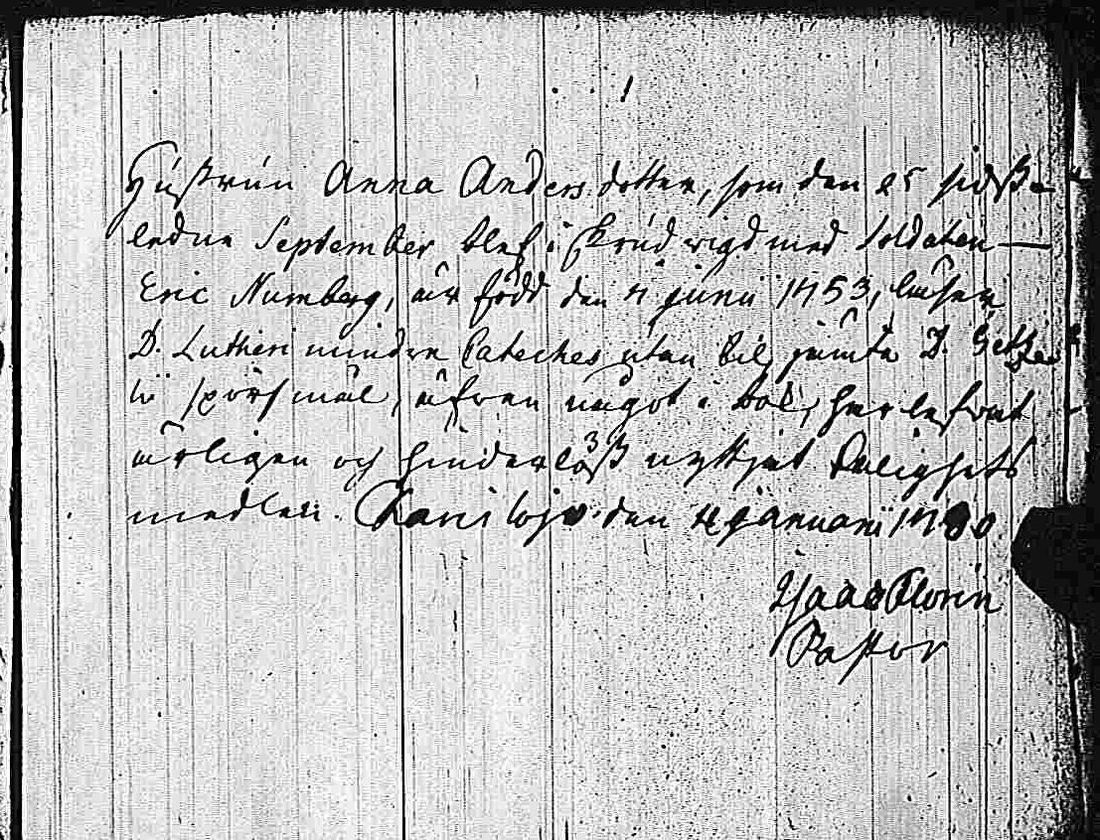 1
Hustrun Anna Anders dotter, som den 25 sidste
ledne September blef i Skrud wigd med Soldaten
Eric Numberg, är född den 4 junii 1753, läser
D. Lutheri mindre Cateches utan till jämte D.
lii spörsmål, äfven något i bok, har lefvat
ärligen och hinderlöst nyttjat Salighets
medlen. Karislojo den 4 januarii 1780
Isaac Florin
Pastor